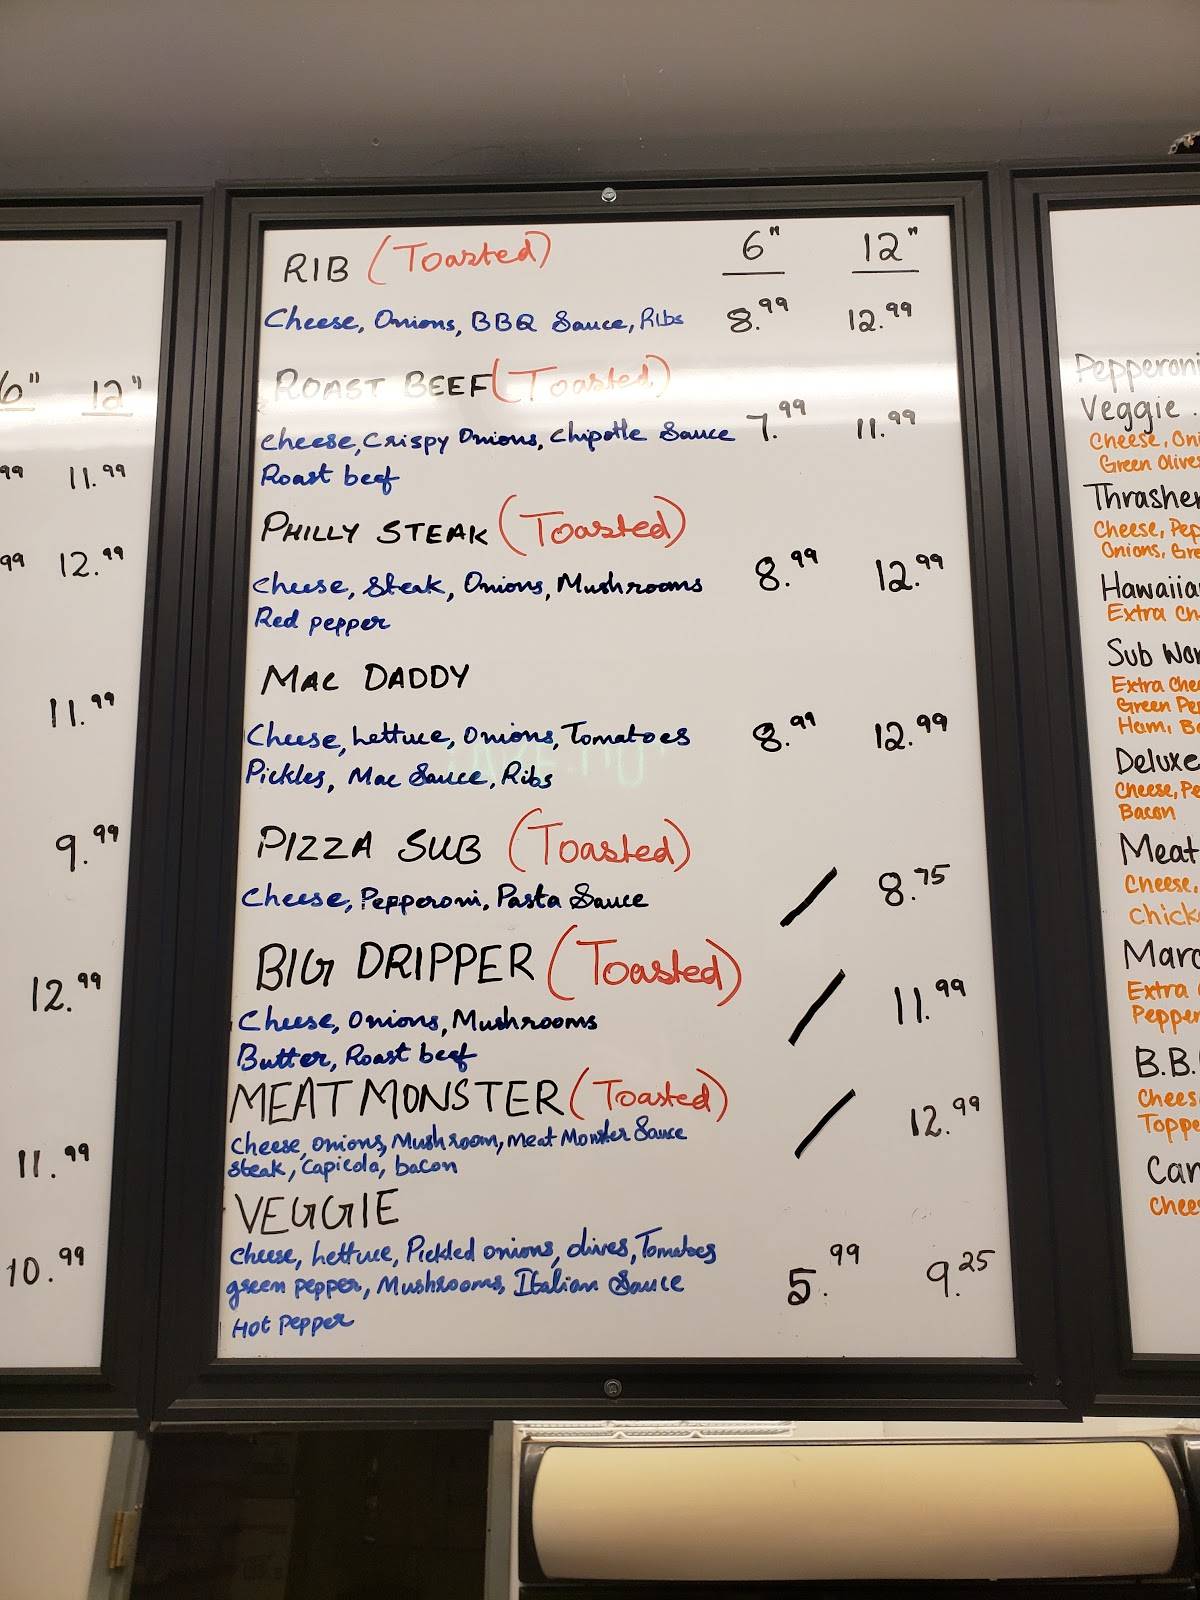 6" 12"
99 11.99
99 12.99
11.99
9.99
12.99
11.99
10.99
RIB (Toasted) 6" 12"
Cheese, Onions, BBQ Sauce, Ribs 8.99 12.99
ROAST BEEF (Toasted)
Cheese, Crispy Onions, Chipotle Sauce 7.99 11.99
Roast beef
PHILLY STEAK (Toasted)
Cheese, Steak, Onions, Mushrooms 8.99 12.99
Red pepper
MAC DADDY
Cheese, Lettuce, Onions, Tomatoes 8.99 12.99
Pickles, Mac Sauce, Ribs
PIZZA SUB (Toasted)
Cheese, Pepperoni, Pasta Sauce / 8.75
BIG DRIPPER (Toasted)
Cheese, Onions, Mushrooms / 11.99
Butter, Roast beef
MEAT MONSTER (Toasted)
Cheese, onions, Mushroom, Meat Monster Sauce / 12.99
Steak, Capicola, bacon
VEGGIE
Cheese, Lettuce, Pickled onions, olives, Tomatoes
green pepper, Mushrooms, Italian Sauce 5.99 9.25
Hot Pepper
Pepperoni
Veggie
Cheese, Oni
Green Olives
Thrasher
Cheese, Pep
Onions, Gre
Hawaiia
Extra Ch
Sub Wor
Extra Chee
Green Pe
Ham, Ba
Deluxe
Cheese, Pe
Bacon
Meat
Cheese,
Chick
Marc
Extra
Pepper
B.B.
Chees
Toppe
Can
Chee